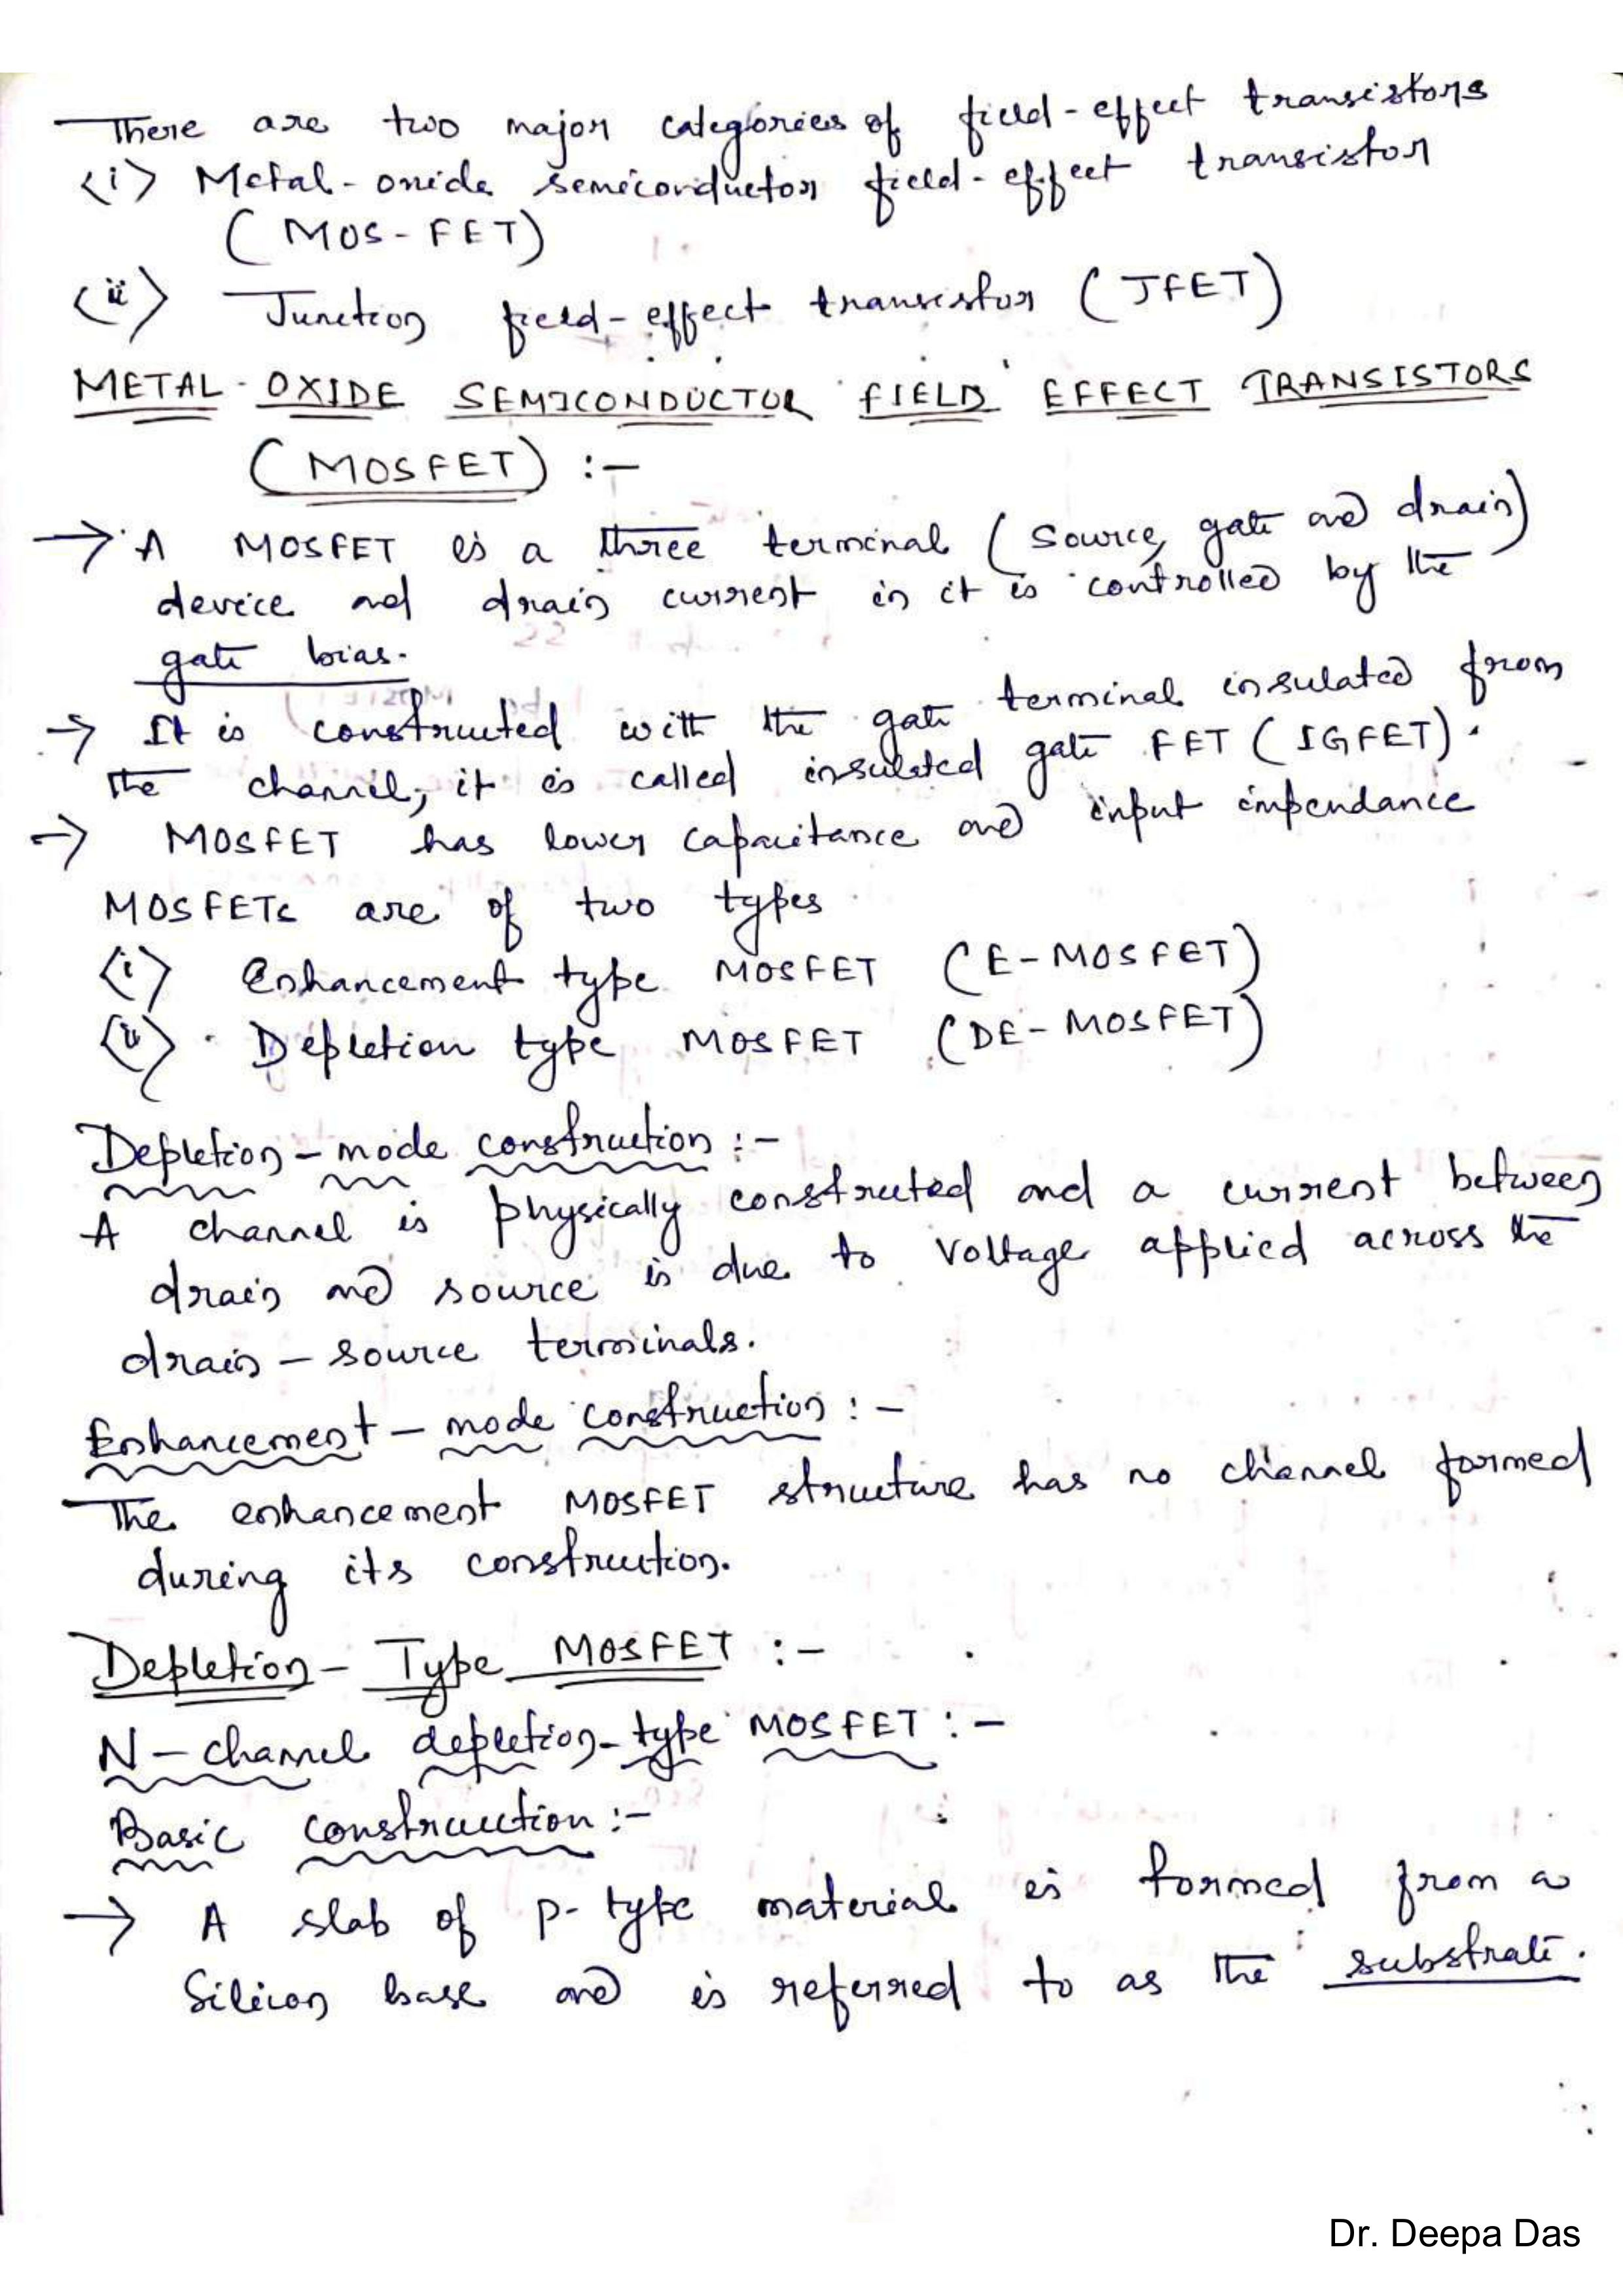 There are two major categories of field-effect transistors
<i> Metal-oxide semiconductor field-effect transistor
(MOS-FET)
<ii> Junction field-effect transistor (JFET)
METAL-OXIDE SEMICONDUCTOR FIELD EFFECT TRANSISTORS
(MOSFET) :-
→ A MOSFET is a three terminal (source, gate and drain)
device and drain current in it is controlled by the
gate bias.
→ It is constructed with the gate terminal insulated from
the channel, it is called insulated gate FET (IGFET).
→ MOSFET has lower capacitance and input impendance
MOSFETs are of two types
<i> Enhancement type MOSFET (E-MOSFET)
<ii> Depletion type MOSFET (DE-MOSFET)
Depletion-mode construction :-
A channel is physically constructed and a current between
drain and source is due to voltage applied across the
drain-source terminals.
Enhancement-mode construction :-
The enhancement MOSFET structure has no channel formed
during its construction.
Depletion-Type MOSFET :-
N-channel depletion-type MOSFET :-
Basic construction :-
→ A slab of p-type material is formed from a
Silicon base and is referred to as the substrate.
Dr. Deepa Das